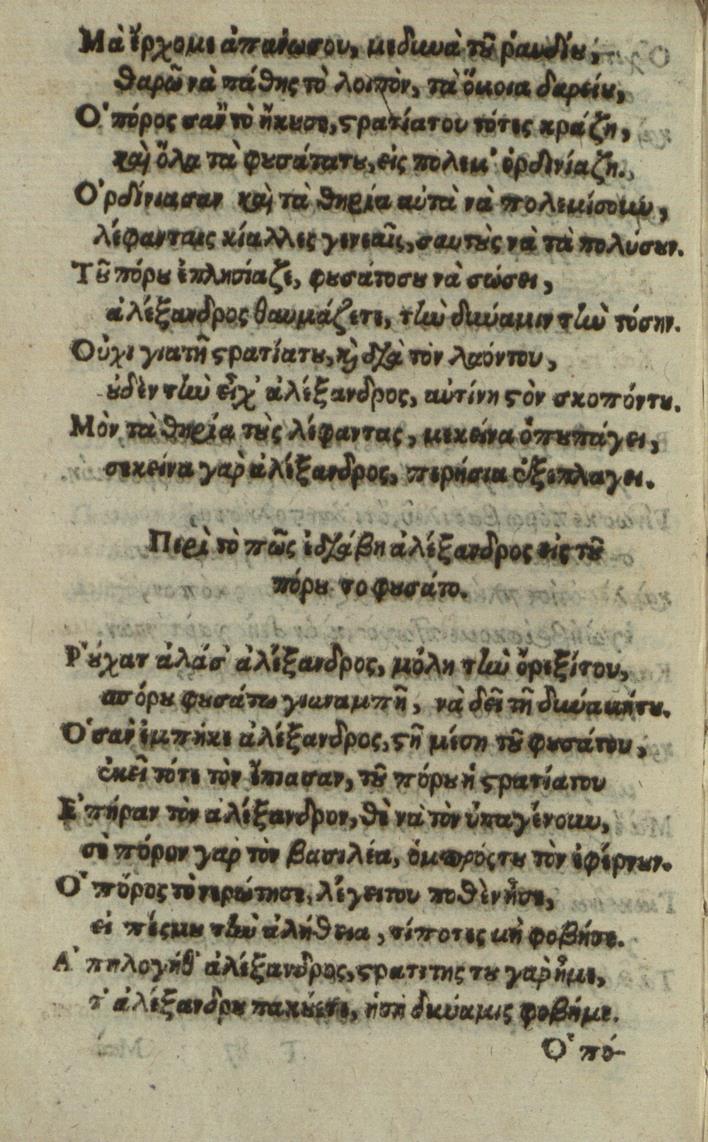 Μὰ ἔρχομε ἀπανωσου, μεδιωὰ τοῦ ραυδίου,
θαρῶ νὰ πάθης τὸ λοιπὸν, τὰ ὅμοια δαρείου,
Ὁ πόρος σαν τὸ ἤκουσε, στρατίατου τότες κράζη,
καὶ ὅλα τὰ φουσάτατου, εἰς πολεμ' ὀρδινίαζη.
Ὀρδίνιασαν καὶ τὰ θηρία αὐτὰ νὰ πολεμίσουν,
λέφανταις κίαλλες γενεαῖς, σαυτοὺς νὰ τὰ πολύσουν.
Τοῦ πόρου ἐπλησίαζε, φουσάτοσου νὰ σώσει,
ἀλέξανδρος θαυμάζετε, τὴν δύναμιν τὴν τόσην.
Οὐχι γιατῆ στρατίατου, καὶ διὰ τὸν λαόντου,
οὐδὲν τὴν εἶχ' ἀλέξανδρος, αὐτίνη στὸν σκοπόντου.
Μὸν τὰ θηρία τοὺς λέφαντας, μεκείνα ὁπουπάγει,
σεκείνα γαρ ἀλέξανδρος, περήσια ἐξεπλαγει.
Περὶ τὸ πῶς ἐδιάβη ἀλέξανδρος εἰς τοῦ
πόρου το φουσάτο.
Ῥούχατ ἀλάσ' ἀλέξανδρος, μόλη τὴν ὀρεξίτου,
απόρου φουσάτω γιωναμπῆ, νὰ δεῖ τῆ δύναμήτου.
Ὅσαν ἐμπήκε ἀλέξανδρος, στῆ μίση τοῦ φουσάτου,
ἐκεῖ τότε τὸν ἔπιασαν, τοῦ πόρου ἡ στρατίατου
Ἐπήραν τὸν ἀλέξανδρον, θὲ νὰ τὸν ὑπαγένουν,
σὲ πόρον γαρ τὸν βασιλέα, ὀμπρόςτου τὸν ἐφέρνουν.
Ὁ πόρος τὸν ερώτησε, λέγειτου ποθὲν ἦσε,
εἰ πέςμου τὴν ἀλήθεια, τίποτες μὴ φοβήσε.
Ἀπηλογήθ' ἀλέξανδρος, στρατιτης του γαρ ἦμε,
τ' ἀλέξανδρου πακούετε, ηση δύναμις φοβήμε.
Ὁ πό-